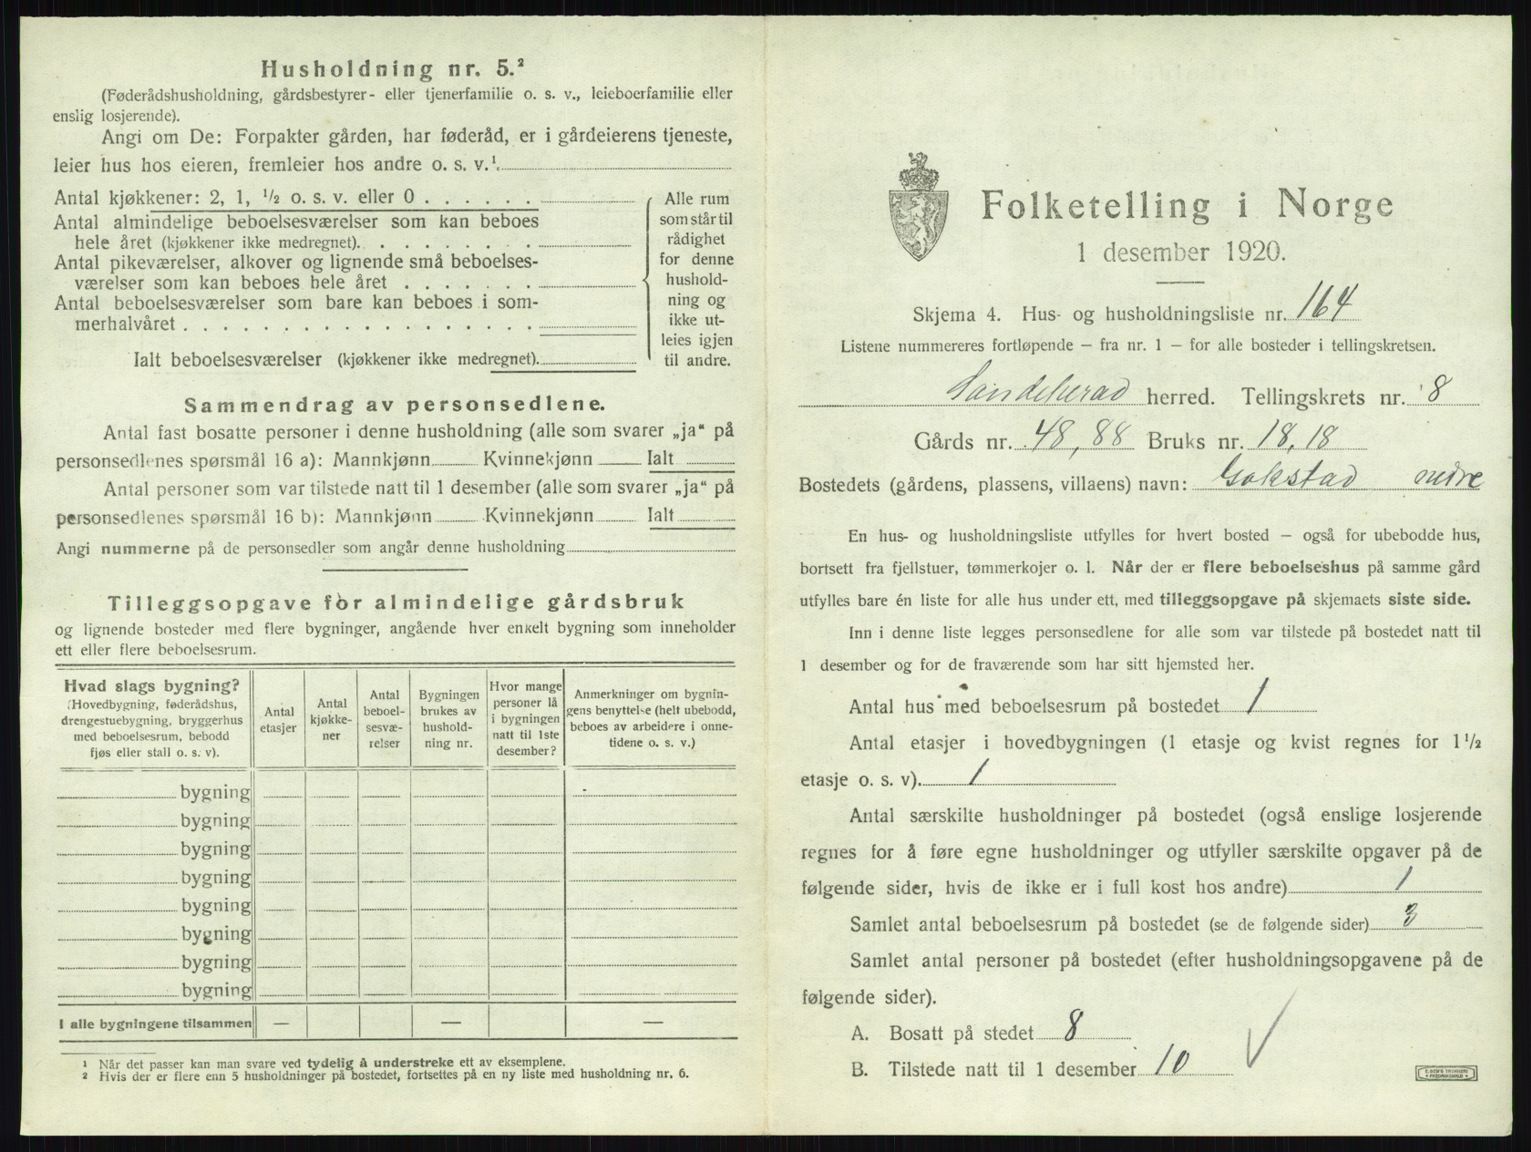 Husholdning nr. 5.²
(Føderådshusholdning, gårdsbestyrer- eller tjenerfamilie o. s. v., leieboerfamilie eller
enslig losjerende).
Angi om De: Forpakter gården, har føderåd, er i gårdeierens tjeneste,
leier hus hos eieren, fremleier hos andre o. s. v.¹.
Antal kjøkkener: 2, 1, ½ o. s. v. eller 0
Antal almindelige beboelsesværelser som kan beboes
hele året (kjøkkener ikke medregnet).
Antal pikeværelser, alkover og lignende små beboelses-
værelser som kan beboes hele året
Antal beboelsesværelser som bare kan beboes i som-
merhalvåret
Ialt beboelsesværelser (kjøkkener ikke medregnet).
Alle rum
som står til
rådighet
for denne
hushold-
ning og
ikke ut-
leies igjen
til andre.
Sammendrag av personsedlene.
Antal fast bosatte personer i denne husholdning (alle som svarer „ja“ på
personsedlenes spørsmål 16 a): Mannkjønn Kvinnekjønn Ialt
Antal personer som var tilstede natt til 1 desember (alle som svarer „ja“ på
personsedlenes spørsmål 16 b): Mannkjønn Kvinnekjønn Ialt
Angi nummerne på de personsedler som angår denne husholdning
Tilleggsopgave for almindelige gårdsbruk
og lignende bosteder med flere bygninger, angående hver enkelt bygning som inneholder
ett eller flere beboelsesrum.
Hvad slags bygning?
(Hovedbygning, føderådshus,
drengestuebygning, bryggerhus
med beboelsesrum, bebodd
fjøs eller stall o. s. v).
Antal
etasjer
Antal
kjøkke-
ner
Antal
beboel-
sesvæ-
relser
Bygningen
brukes av
hushold-
ning nr.
Hvor mange
personer lå
i bygningen
natt til 1ste
desember?
Anmerkninger om bygnin-
gens benyttelse (helt ubebodd,
beboes av arbeidere i onne-
tidene o. s. v.)
bygning
bygning
bygning
bygning
bygning
bygning
bygning
bygning
I alle bygningene tilsammen — — —
¹ Når det passer kan man svare ved tydelig å understreke ett av eksemplene.
² Hvis der er flere enn 5 husholdninger på bostedet, fortsettes på en ny liste med husholdning nr. 6.
Folketelling i Norge
1 desember 1920.
Skjema 4. Hus- og husholdningsliste nr. 164
Listene nummereres fortløpende – fra nr. 1 – for alle bosteder i tellingskretsen.
Sandeherad herred. Tellingskrets nr. 8
Gårds nr. 48, 88 Bruks nr. 18, 18
Bostedets (gårdens, plassens, villaens) navn: Gokstad nedre
En hus- og husholdningsliste utfylles for hvert bosted – også for ubebodde hus,
bortsett fra fjellstuer, tømmerkojer o. l. Når der er flere beboelseshus på samme gård
utfylles bare én liste for alle hus under ett, med tilleggsopgave på skjemaets siste side.
Inn i denne liste legges personsedlene for alle som var tilstede på bostedet natt til
1 desember og for de fraværende som har sitt hjemsted her.
Antal hus med beboelsesrum på bostedet 1
Antal etasjer i hovedbygningen (1 etasje og kvist regnes for 1½
etasje o. s. v). 1
Antal særskilte husholdninger på bostedet (også enslige losjerende
regnes for å føre egne husholdninger og utfyller særskilte opgaver på de
følgende sider, hvis de ikke er i full kost hos andre) 1
Samlet antal beboelsesrum på bostedet (se de følgende sider) 3
Samlet antal personer på bostedet (efter husholdningsopgavene på de
følgende sider).
A. Bosatt på stedet 8
B. Tilstede natt til 1 desember 10